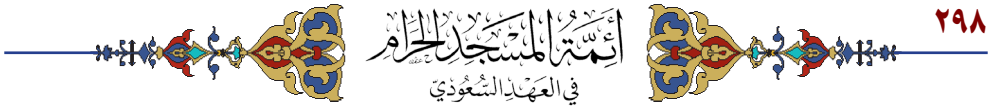 ٢٩٨
أَئِمَّةُ المَسْجِدِ الحَرَامِ
فِي العَهْدِ السُّعُودِيِّ